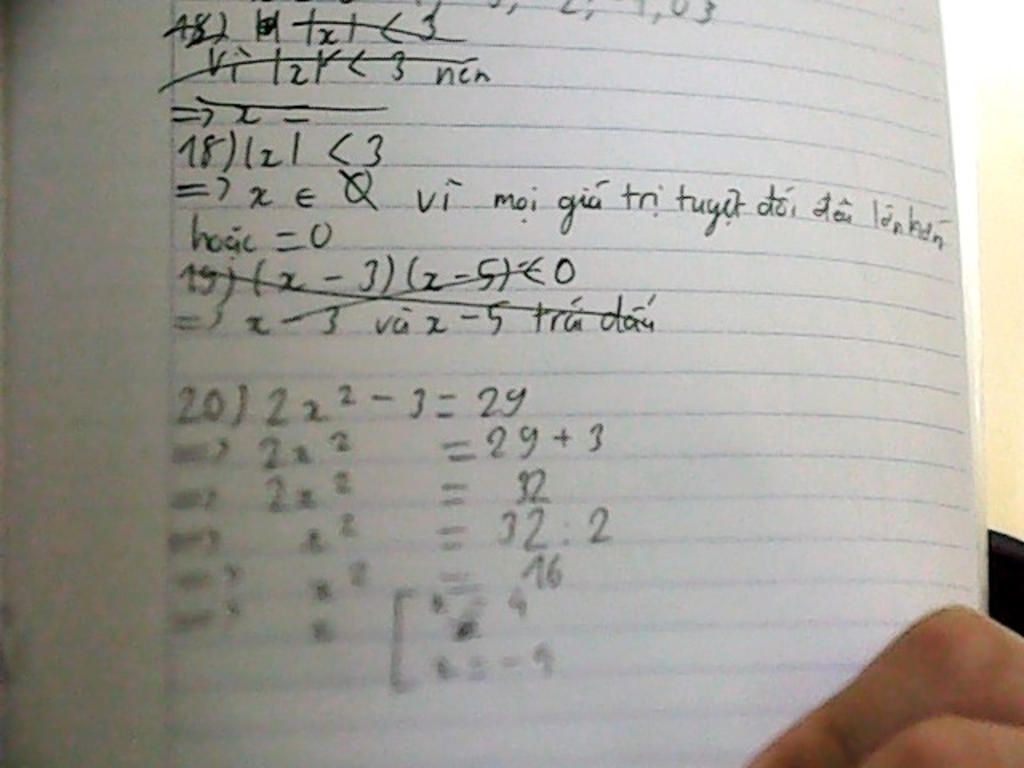 18) |x| < 3
Vì |x| < 3 nên
=> x =
18) |x| < 3
=> x ∈ Q vì mọi giá trị tuyệt đối đều lớn hơn
hoặc = 0
19) (x - 3) (x - 5) < 0
=> x - 3 và x - 5 trái dấu
20) 2x² - 3 = 29
=> 2x² = 29 + 3
=> 2x² = 32
=> x² = 32 : 2
=> x² = 16
=> x [ x = 4
x = -4